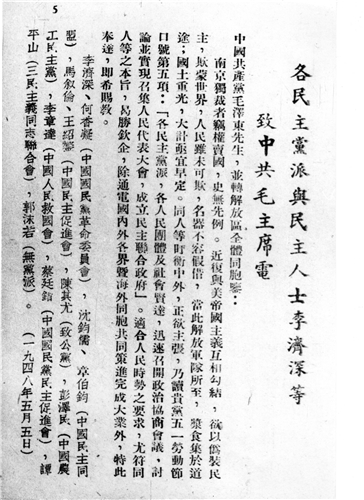 各民主黨派與民主人士李濟深等
致中共毛主席電
中國共產黨毛澤東先生，並轉解放區全體同胞鑒：
南京獨裁者竊權賣國，史無先例。近復與美帝國主義互相勾結，欲以僞裝民
主，欺蒙世界，人民雖未可欺，名器不容假借，當此解放軍隊所至，漿食集於道
途；國土重光，大計亟宜早定。同人等盱衡中外，正欲主張，乃讀貴黨五一勞動節
口號第五項：「各民主黨派，各人民團體及社會賢達，迅速召開政治協商會議，討
論並實現召集人民代表大會，成立民主聯合政府」。適合人民時勢之要求，尤符同
人等之本旨，曷勝欽企，除通電國內外各界暨海外同胞共同策進完成大業外，特此
奉達，即希賜教。
李濟深、何香凝（中國國民黨革命委員會），沈鈞儒、章伯鈞（中國民主同
盟），馬叙倫、王紹鏊（中國民主促進會），陳其尤（致公黨），彭澤民（中國農
工民主黨），李章達（中國人民救國會），蔡廷鍇（中國國民黨民主促進會），譚
平山（三民主義同志聯合會），郭沫若（無黨派）。（一九四八年五月五日）
5